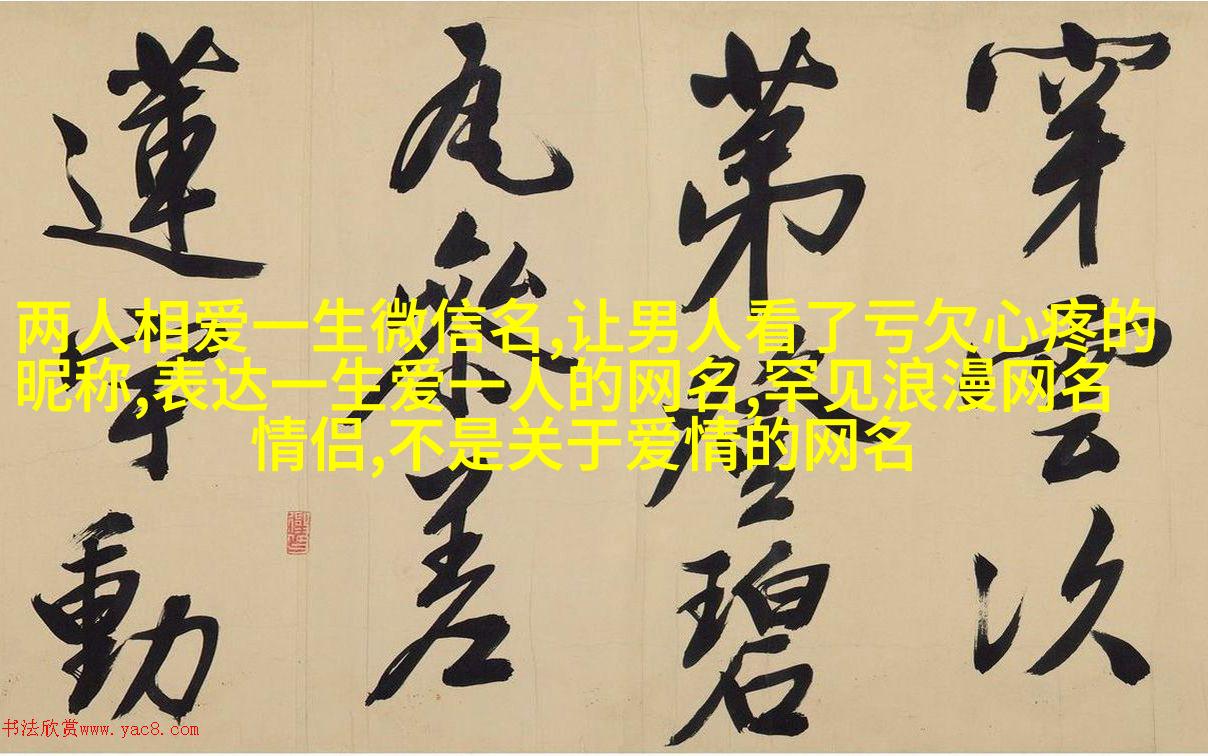 穿雲次
第登碧
瓦參差
蓮宇動
两人相爱一生微信名,让男人看了亏欠心疼的
昵称,表达一生爱一人的网名,罕见浪漫网名
情侣,不是关于爱情的网名
书法欣赏www.yac8.com